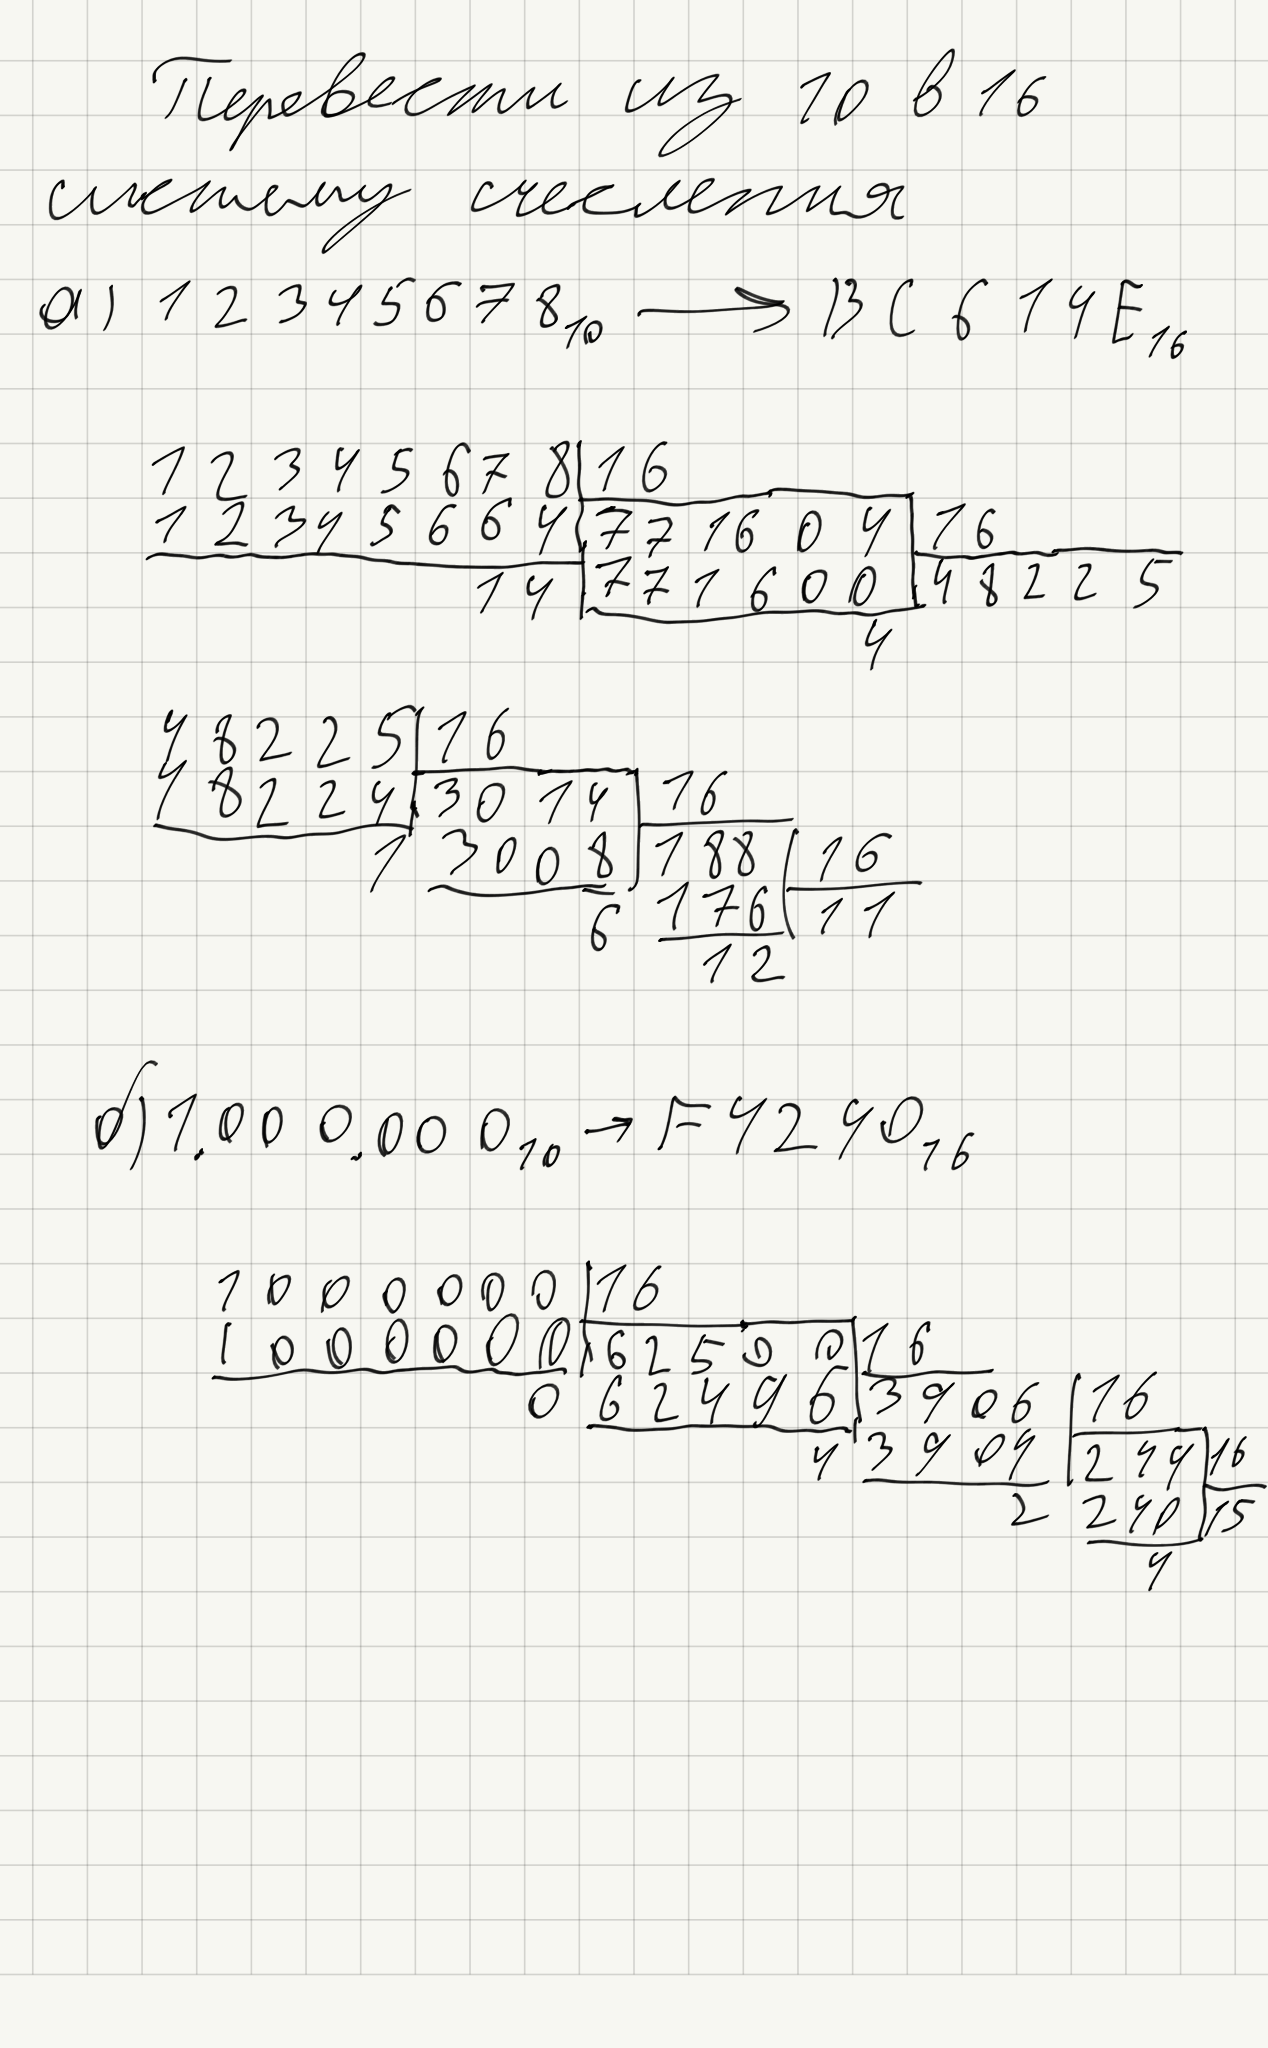 Перевести из 10 в 16
систему счесления
а) 12345678₁₀ → BC614E₁₆
12345678 16
12345664 771604 16
14 771600 48225
4
48225 16
48224 3014 16
1 3008 188 16
6 176 11
12
б) 1.000.000₁₀ → F4240₁₆
1000000 16
1000000 62500 16
0 62496 3906 16
4 3904 244 16
2 240 15
4